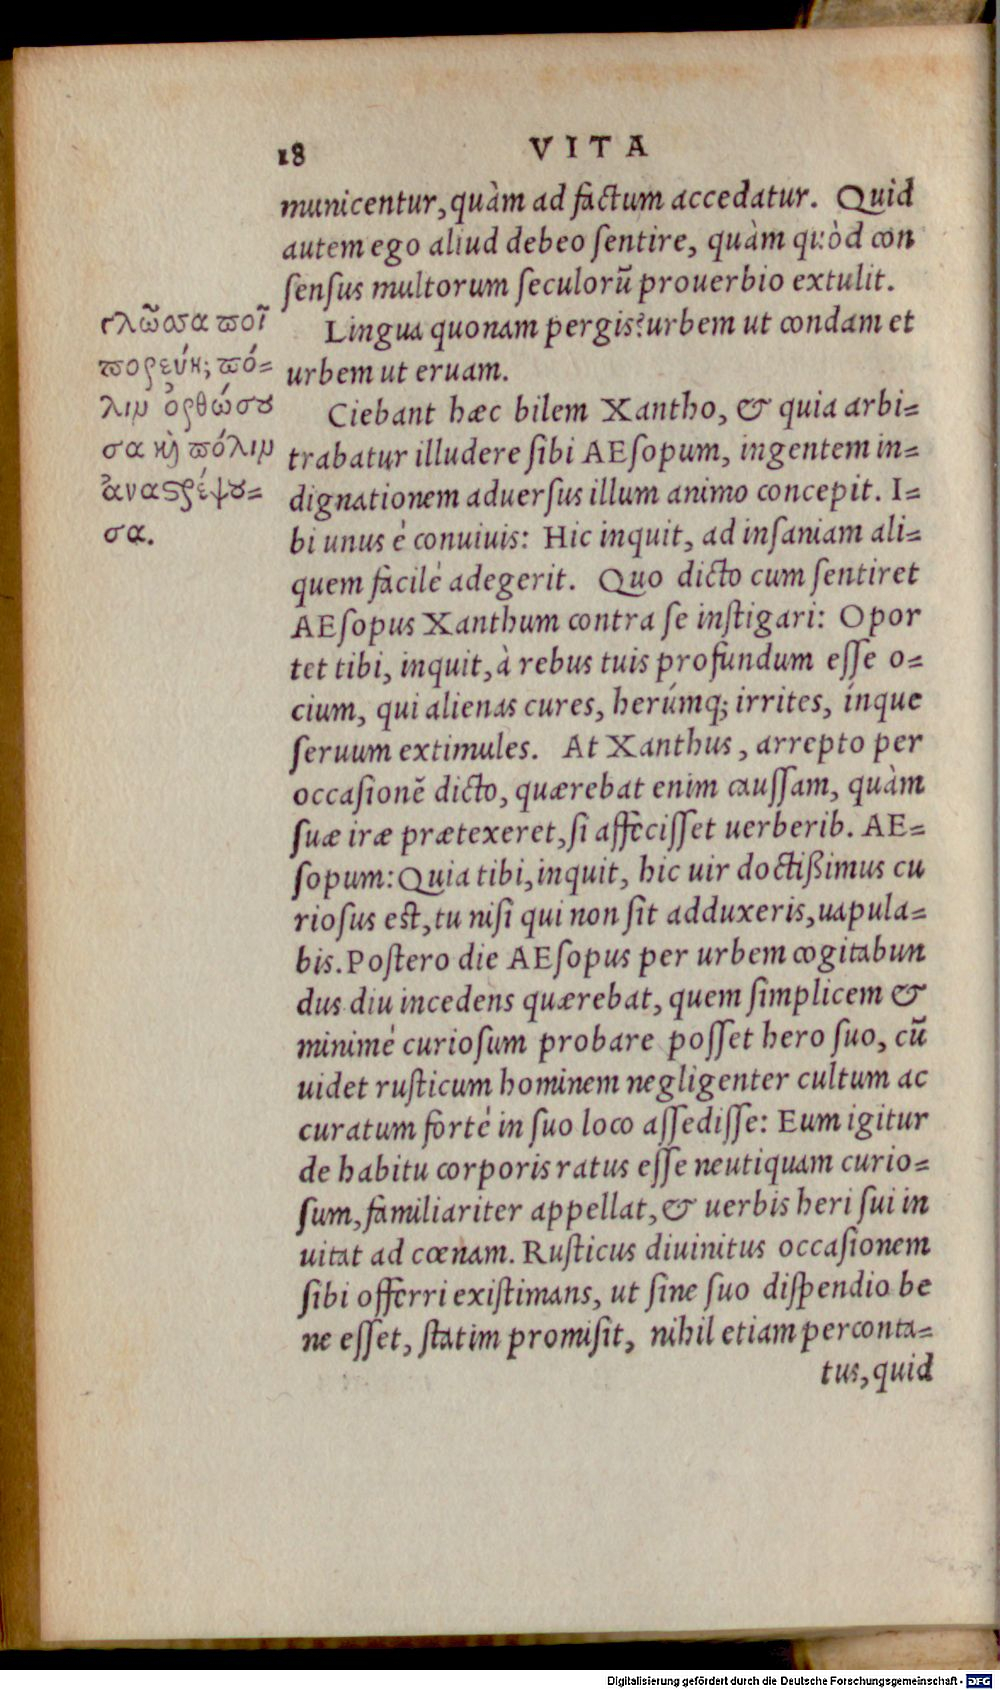 18 VITA
municentur, quàm ad factum accedatur. Quid
autem ego aliud debeo sentire, quàm quòd con
sensus multorum seculorũ prouerbio extulit.
Lingua quonam pergis? urbem ut condam et
urbem ut eruam.
γλῶσσα ποῖ
πορεύῃ; πό=
λιν ὀρθώσου
σα κὴ πόλιν
ἀναστρέψου=
σα.
Ciebant hæc bilem Xantho, & quia arbi=
trabatur illudere sibi AEsopum, ingentem in=
dignationem aduersus illum animo concepit. I=
bi unus é conuiuis: Hic inquit, ad insaniam ali=
quem facilé adegerit. Quo dicto cum sentiret
AEsopus Xanthum contra se instigari: Opor
tet tibi, inquit, à rebus tuis profundum esse o=
cium, qui alienas cures, herúmq; irrites, ínque
seruum extimules. At Xanthus, arrepto per
occasionẽ dicto, quærebat enim caussam, quàm
suæ iræ prætexeret, si affecisset uerberib. AE=
sopum: Quia tibi, inquit, hic uir doctißimus cu
riosus est, tu nisi qui non sit adduxeris, uapula=
bis. Postero die AEsopus per urbem cogitabun
dus diu incedens quærebat, quem simplicem &
minimé curiosum probare posset hero suo, cũ
uidet rusticum hominem negligenter cultum ac
curatum forté in suo loco assedisse: Eum igitur
de habitu corporis ratus esse neutiquam curio=
sum, familiariter appellat, & uerbis heri sui in
uitat ad cœnam. Rusticus diuinitus occasionem
sibi offerri existimans, ut sine suo dispendio be
ne esset, statim promisit, nihil etiam perconta=
tus, quid
Digitalisierung gefördert durch die Deutsche Forschungsgemeinschaft - DFG